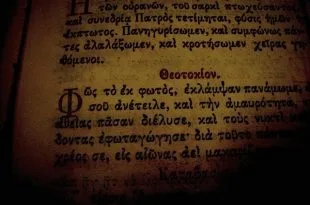 τῶν οὐρανῶν, τοῦ σαρκὶ πτωχεύσαντος
καὶ συνεδρία Πατρὸς τετίμηται, φύσις ἡμῶν
ἔκπτωτος. Πανηγυρίσωμεν, καὶ συμφώνως πάν
τες ἀλαλάξωμεν, καὶ κροτήσωμεν χεῖρας γη
θόμενοι.
Θεοτοκίον.
Φῶς τὸ ἐκ φωτός, ἐκλάμψαν πανάμωμε,
σοῦ ἀνέτειλε, καὶ τὴν ἀμαυρότητα,
πᾶσαν διέλυσε, καὶ τοὺς νυκτὶ
δοντας ἐφωταγώγησε· διὰ τοῦτο
χρέος σε, εἰς αἰῶνας ἀεὶ